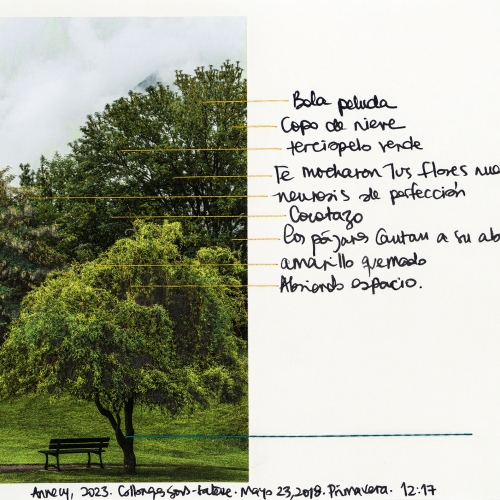 Bola peluda
Copo de nieve
terciopelo verde
Te mocharon Tus flores nue
neurosis de perfección
Cocotazo
los pájaros Cantan a su ab
amarillo quemado
Abriendo espacio.
Annecy, 2023. Collonges Sous-Salève. Mayo 23, 2018. Primavera. 12:17